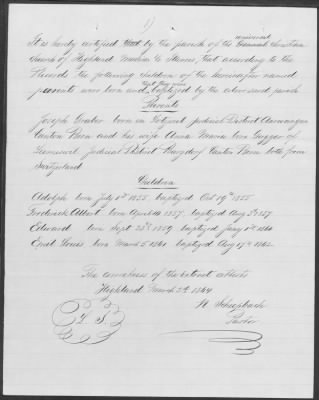 1)
It is hereby certified that by the parish of the Evangelical Christian
Church of Highland Madison Co Illinois, that according to the
Records the following children of the hereinafter named
parents were born and baptized by the aforesaid parish
Parents
Joseph Graber born in Lotzwil judicial District Aarwangen
Canton Bern and his wife Anna Maria born Gugger of
judicial District Burgdorf Canton Bern both from
Switzerland
Children
Adolph born July 4th 1855 baptized Oct 19th 1855.
Frederick Albert born April 14 1857. baptized Aug 5th 1857
Edward born Sept 25th 1859 baptized Jany 1st 1860
Ernst Louis born March 5th 1861 baptized Aug 17th 1862.
The correctness of the extract attests
Highland, March 2d. 1864
Pastor
L. S.